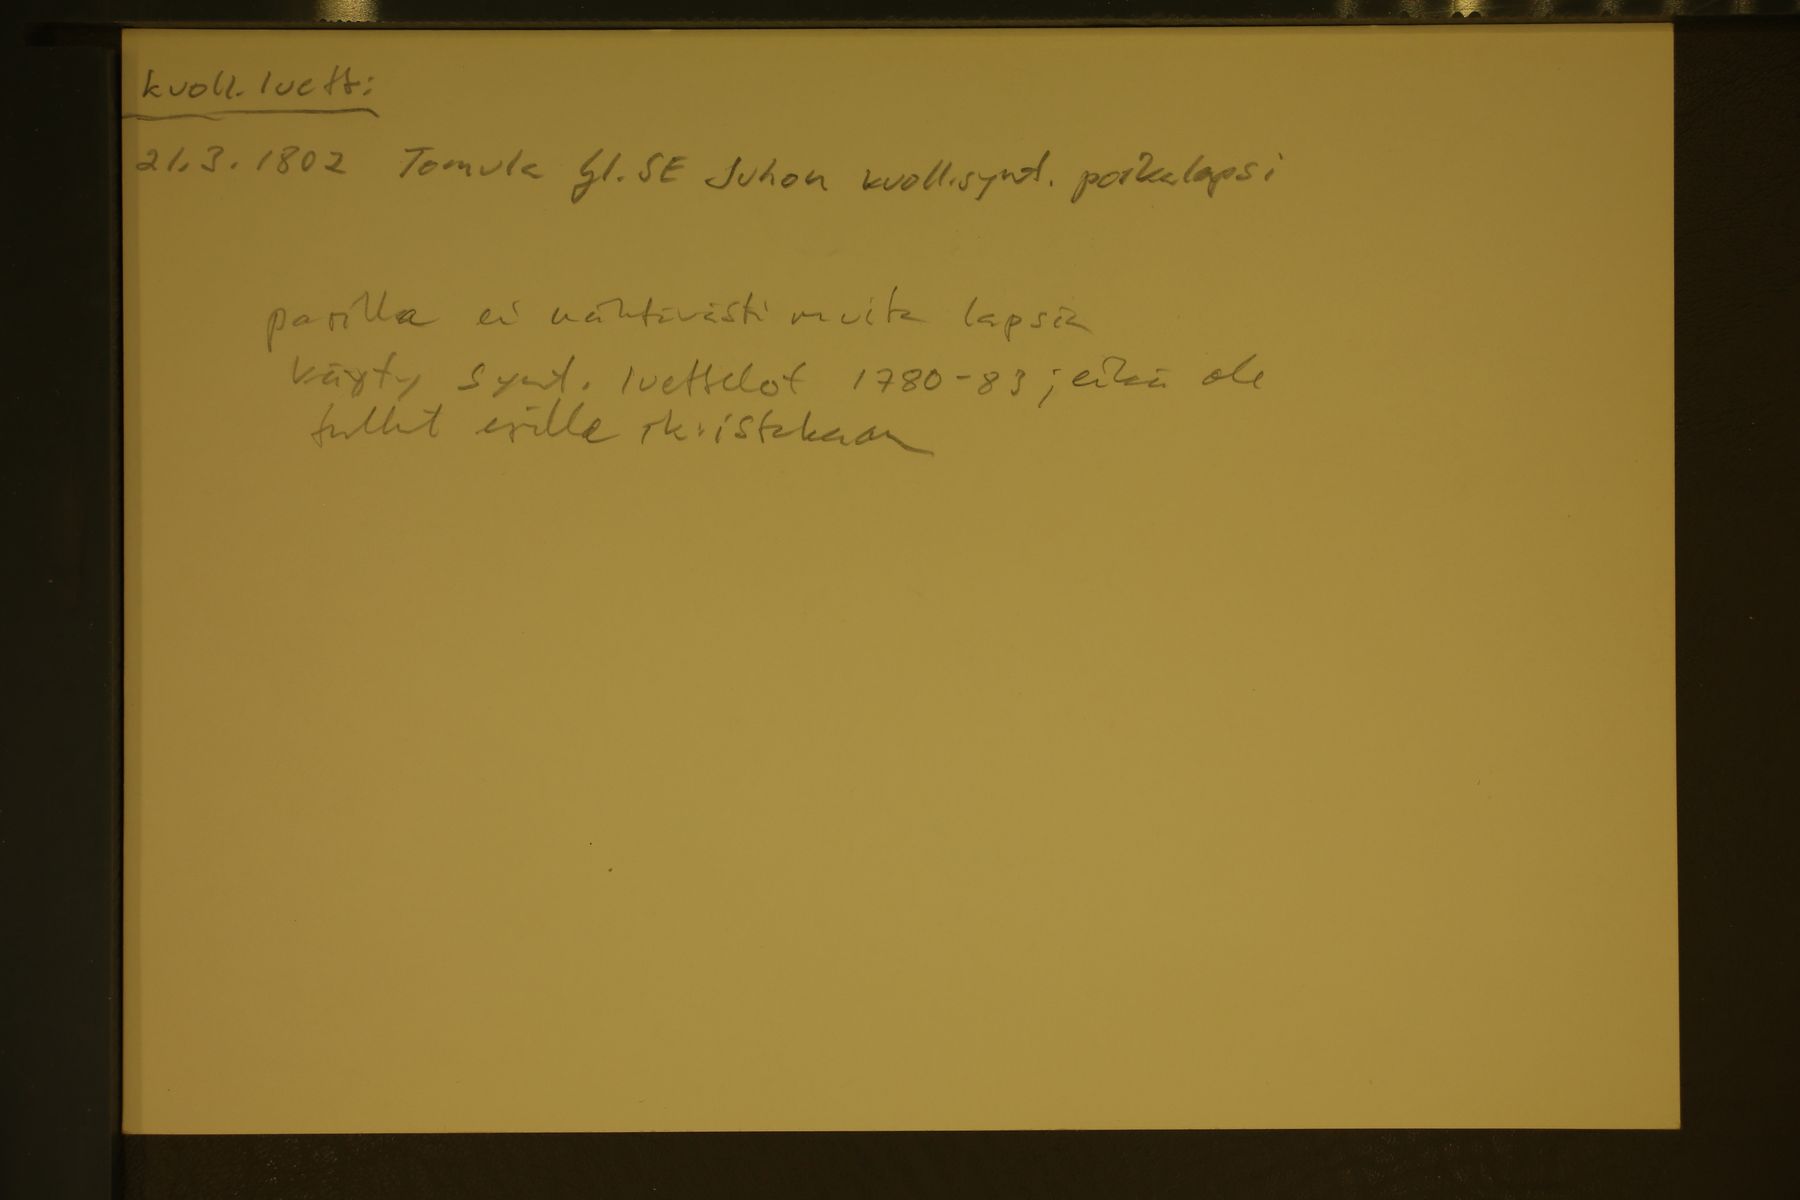 kuoll. luett:
21.3.1802 Tomula Yl.SE Juhon kuoll.synt. poikalapsi
parilla ei nähtävästi muita lapsia
käyty synt. luettelot 1780-83; eikä ole
tullut esille rk:istakaan